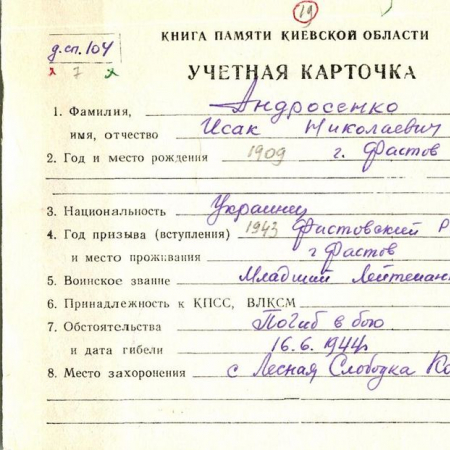 19
КНИГА ПАМЯТИ КИЕВСКОЙ ОБЛАСТИ
д.сп. 104
х 7 х
УЧЕТНАЯ КАРТОЧКА
1. Фамилия, Андросенко
имя, отчество Исак Николаевич
2. Год и место рождения 1909 г. Фастов
3. Национальность Украинец
4. Год призыва (вступления) 1943 Фастовский Р
и место проживания г Фастов
5. Воинское звание Младший Лейтенан
6. Принадлежность к КПСС, ВЛКСМ
7. Обстоятельства Погиб в бою
и дата гибели 16.6.1944г
8. Место захоронения с Лесная Слободка Ко